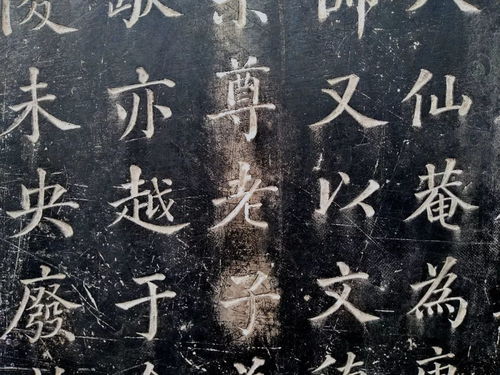 仙菴為
師又以文
宗尊老子
亦越于
陵未央廢